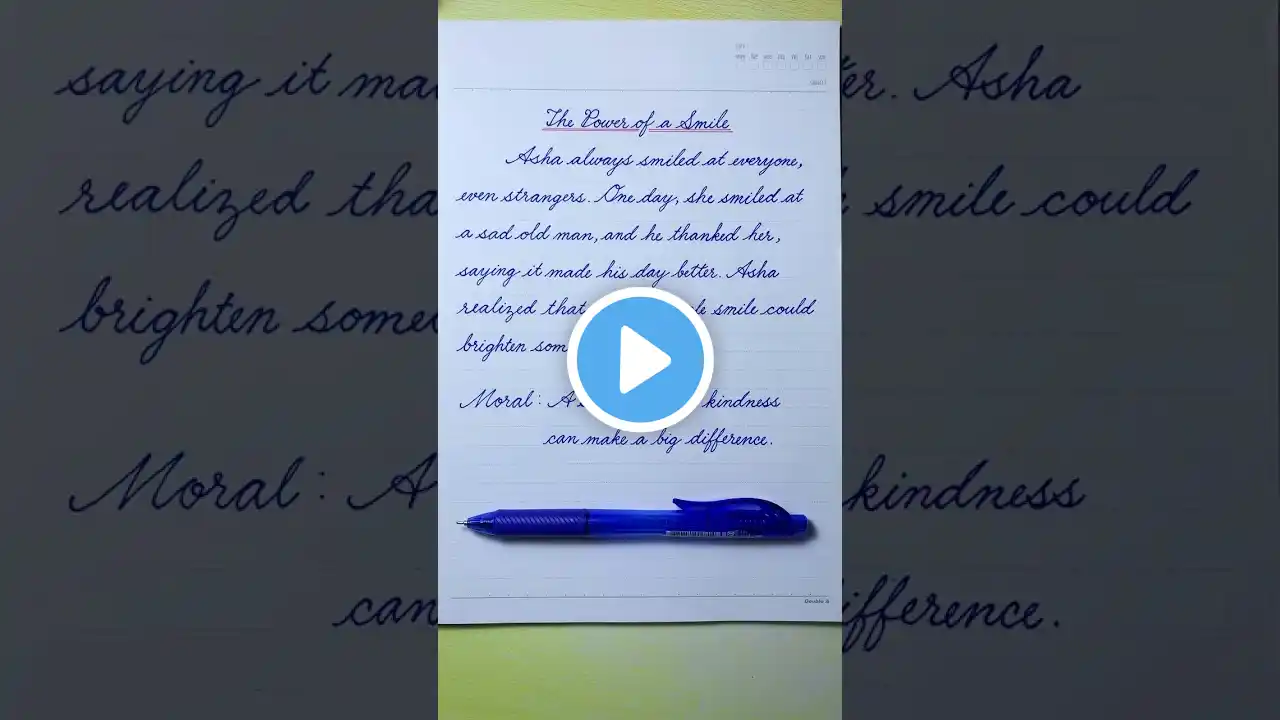 The Power of a Smile
Asha always smiled at everyone,
even strangers. One day, she smiled at
a sad old man, and he thanked her,
saying it made his day better. Asha
realized that smile could
brighten
Moral: A kindness
can make a big difference.
Double A